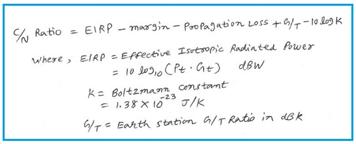 C/N Ratio = EIRP - margin - Propagation Loss + G/T - 10 log K
Where, EIRP = Effective Isotropic Radiated Power
= 10 log10 (Pt . Gt) dBW
K = Boltzmann constant
= 1.38 × 10^-23 J/K
G/T = Earth station G/T Ratio in dBK